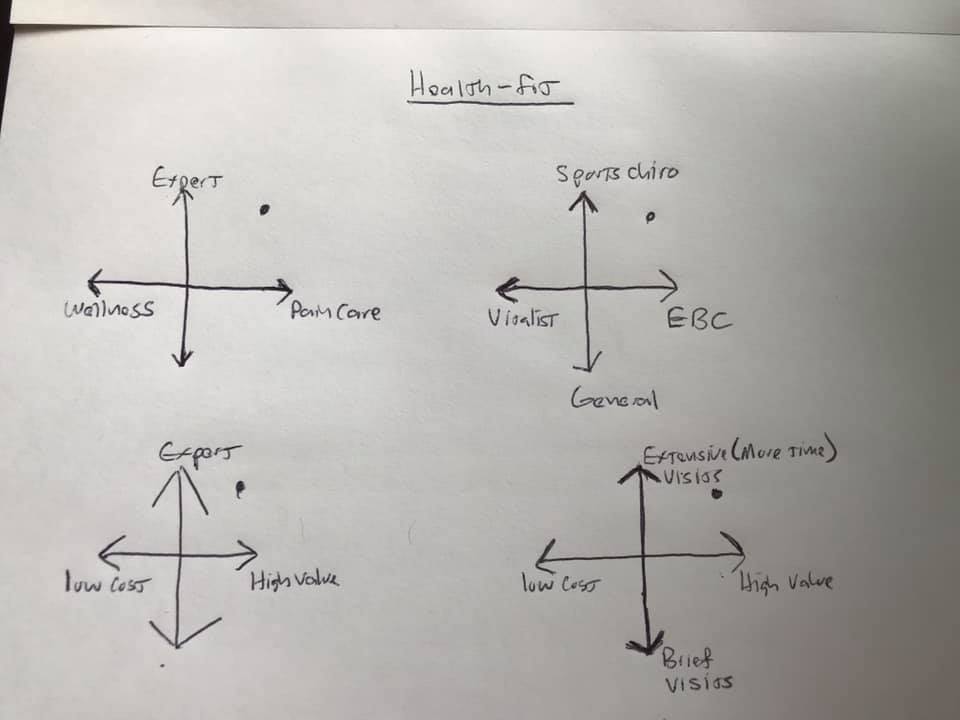 Health-fit
Expert
Wellness
Pain Care
Sports chiro
Vitalist
EBC
General
Expert
low cost
High Value
Extensive (More Time)
Visits
low cost
High Value
Brief
Visits